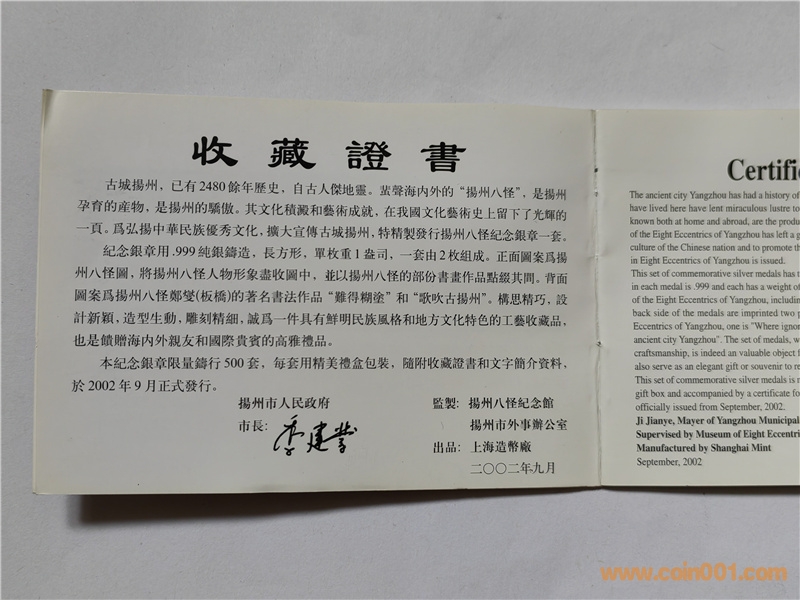 收藏證書
古城揚州，已有2480餘年歷史，自古人傑地靈。蜚聲海内外的“揚州八怪”，是揚州
孕育的産物，是揚州的驕傲。其文化積澱和藝術成就，在我國文化藝術史上留下了光輝的
一頁。爲弘揚中華民族優秀文化，擴大宣傳古城揚州，特精製發行揚州八怪紀念銀章一套。
紀念銀章用.999純銀鑄造，長方形，單枚重1盎司，一套由2枚組成。正面圖案爲揚
州八怪圖，將揚州八怪人物形象盡收圖中，並以揚州八怪的部份書畫作品點綴其間。背面
圖案爲揚州八怪鄭燮(板橋)的著名書法作品“難得糊塗”和“歌吹古揚州”。構思精巧，設
計新穎，造型生動，雕刻精細，誠爲一件具有鮮明民族風格和地方文化特色的工藝收藏品，
也是饋贈海内外親友和國際貴賓的高雅禮品。
本紀念銀章限量鑄行500套，每套用精美禮盒包裝，隨附收藏證書和文字簡介資料，
於2002年9月正式發行。
揚州市人民政府
市長：季建業
監製：揚州八怪紀念館
揚州市外事辦公室
出品：上海造幣廠
二〇〇二年九月
Certific
The ancient city Yangzhou has had a history of
have lived here have lent miraculous lustre to
known both at home and abroad, are the produc
of the Eight Eccentrics of Yangzhou has left a g
culture of the Chinese nation and to promote th
in Eight Eccentrics of Yangzhou is issued.
This set of commemorative silver medals has t
in each medal is .999 and each has a weight of
of the Eight Eccentrics of Yangzhou, including
back side of the medals are imprinted two p
Eccentrics of Yangzhou, one is "Where ignor
ancient city Yangzhou". The set of medals, w
craftsmanship, is indeed an valuable object f
also serve as an elegant gift or souvenir to re
This set of commemorative silver medals is r
gift box and accompanied by a certificate fo
officially issued from September, 2002.
Ji Jianye, Mayor of Yangzhou Municipal
Supervised by Museum of Eight Eccentri
Manufactured by Shanghai Mint
September, 2002
www.coin001.com